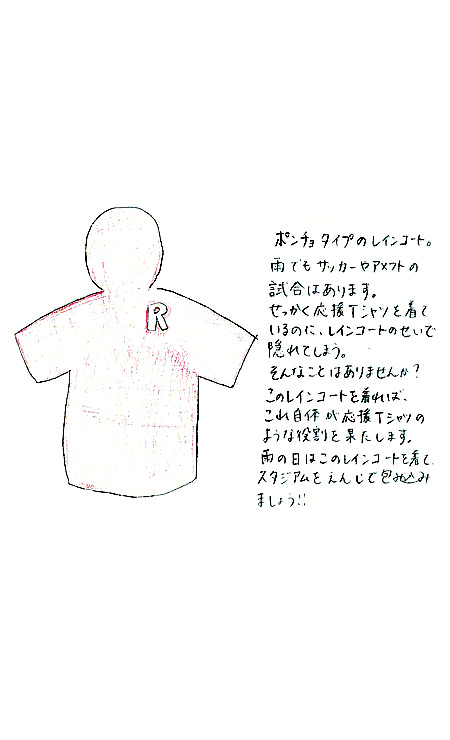 R
ポンチョタイプのレインコート。
雨でもサッカーやアメフトの
試合はあります。
せっかく応援Tシャツを着て
いるのに、レインコートのせいで
隠れてしまう。
そんなことはありませんか?
このレインコートを着れば、
これ自体が応援Tシャツの
ような役割を果たします。
雨の日はこのレインコートを着て、
スタジアムをえんじで包み込み
ましょう!!